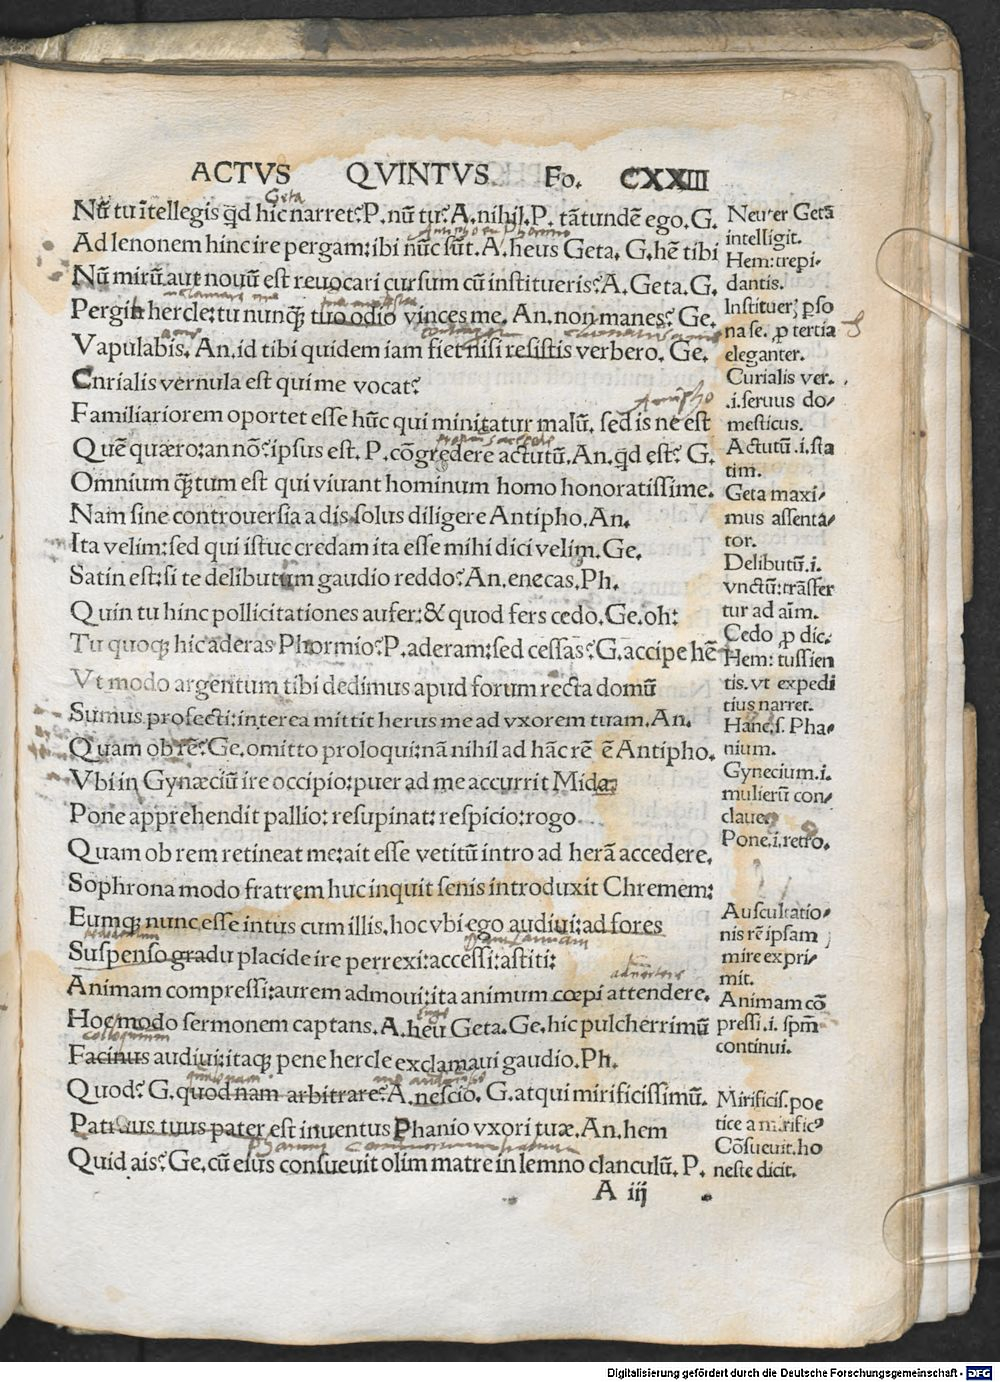 ACTVS QVINTVS Fo. CXXIII
Nũ tu ĩtellegis q̃d hic narret? P. nũ tu? A. nihil. P. tãtundẽ ego. G.
Ad lenonem hinc ire pergam: ibi nũc sũt. A. heus Geta. G. hẽ tibi
Nũ mirũ aut nouũ est reuocari cursum cũ institueris? A. Geta. G.
Pergit hercle: tu nunq̃ tuo odio vinces me. An. non manes? Ge.
Vapulabis. An. id tibi quidem iam fiet nisi resistis verbero. Ge.
Cnrialis vernula est qui me vocat?
Familiariorem oportet esse hũc qui minitatur malũ. sed is ne est
Quẽ quæro: an nõ? ipsus est. P. cõgredere actutũ. An. q̃d est? G.
Omnium q̃tum est qui viuant hominum homo honoratissime.
Nam sine controuersia a dis solus diligere Antipho. An.
Ita velim: sed qui istuc credam ita esse mihi dici velim. Ge.
Satin est: si te delibutum gaudio reddo? An. enecas. Ph.
Quin tu hinc pollicitationes aufer: & quod fers cedo. Ge. oh:
Tu quoq; hic aderas Phormio? P. aderam: sed cessas? G. accipe hẽ
Vt modo argentum tibi dedimus apud forum recta domũ
Sumus profecti: interea mittit herus me ad vxorem tuam. An.
Quam ob rẽ? Ge. omitto proloqui: nã nihil ad hãc rẽ ẽ Antipho.
Vbi in Gynæciũ ire occipio: puer ad me accurrit Mida
Pone apprehendit pallio: resupinat: respicio: rogo
Quam ob rem retineat me: ait esse vetitũ intro ad herã accedere.
Sophrona modo fratrem huc inquit senis introduxit Chremem:
Eumq; nunc esse intus cum illis. hoc vbi ego audiui: ad fores
Suspenso gradu placide ire perrexi: accessi: astiti:
Animam compressi: aurem admoui: ita animum cœpi attendere.
Hoc modo sermonem captans. A. heu Geta. Ge. hic pulcherrimũ
Facinus audiui: itaq; pene hercle exclamaui gaudio. Ph.
Quod? G. quod nam arbitrare? A. nescio. G. atqui mirificissimũ.
Patruus tuus pater est inuentus Phanio vxori tuæ. An. hem
Quid ais? Ge. cũ eius consueuit olim matre in lemno clanculũ. P.
A iij
Neuter Getã
intelligit.
Hem: trepi-
dantis.
Instituer; pso
na se. p tertia
eleganter.
Curialis ver.
.i. seruus do-
mesticus.
Actutũ .i. sta
tim.
Geta maxi-
mus assenta-
tor.
Delibutũ .i.
vnctũ: trãsfer
tur ad aĩm.
Cedo p dic.
Hem: tussien
tis. vt expedi
tius narret.
Hanc. s. Pha-
nium.
Gynecium .i.
mulierũ con-
claue.
Pone .i. retro.
Auscultatio-
nis rẽ ipsam
mire expri-
mit.
Animam cõ
pressi .i. spm̃
continui.
Mirificis. poe
tice a mirific9
Cõsueuit. ho
neste dicit.
Geta
Antipho
Digitalisierung gefördert durch die Deutsche Forschungsgemeinschaft - DFG